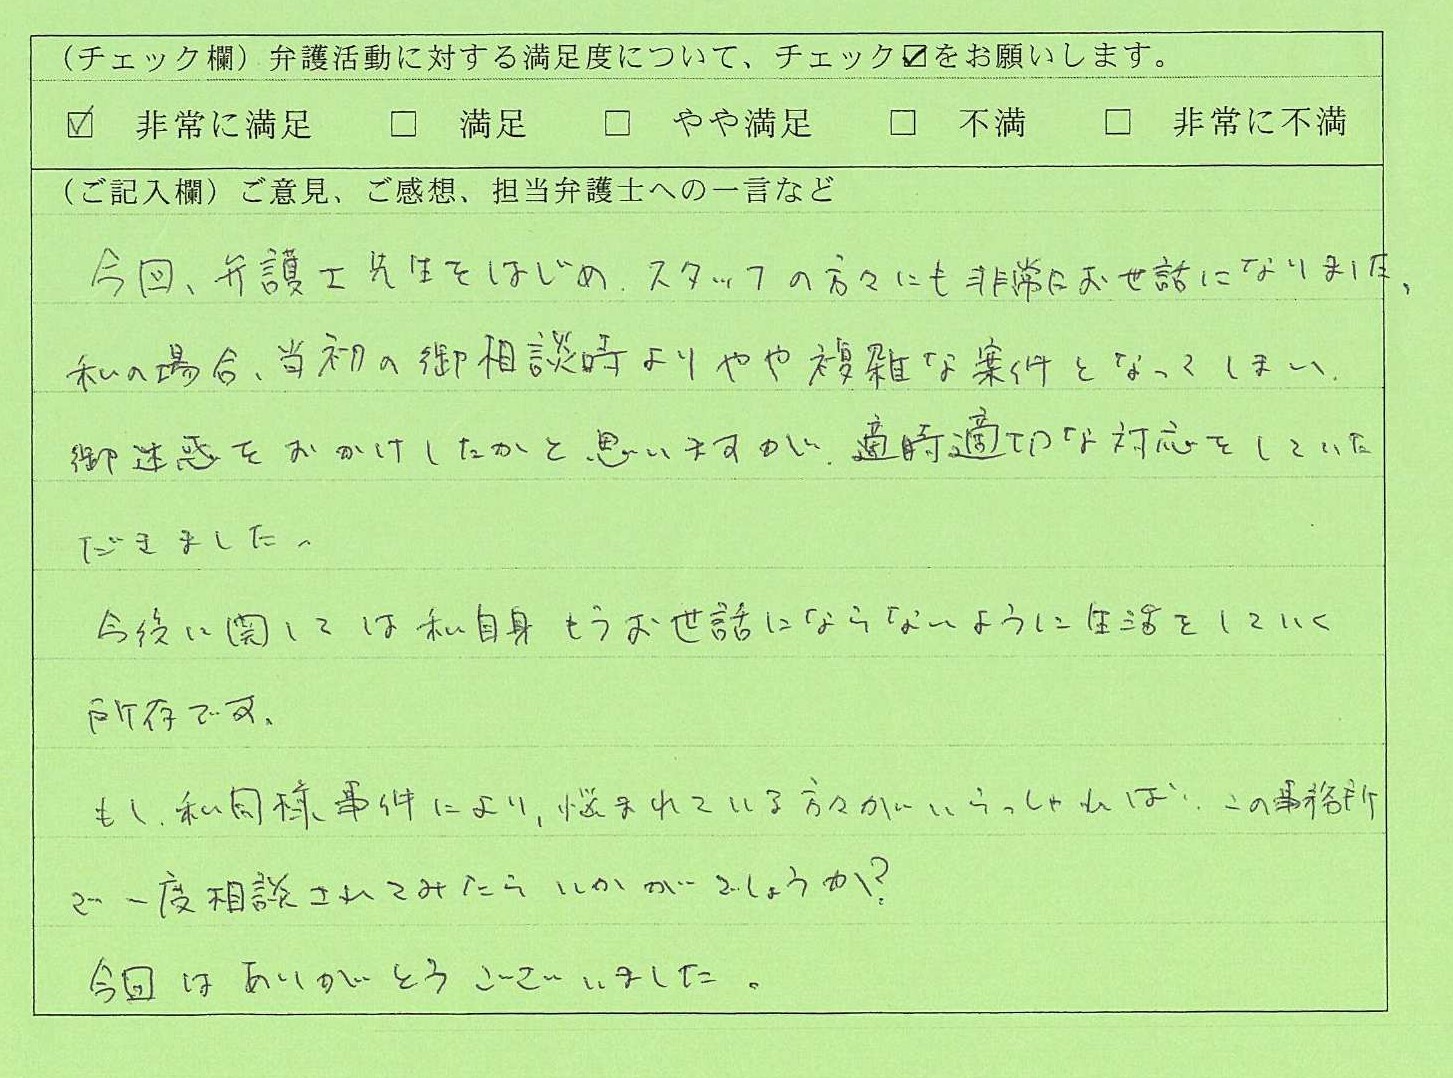 (チェック欄)弁護活動に対する満足度について、チェック☑をお願いします。
☑ 非常に満足 □ 満足 □ やや満足 □ 不満 □ 非常に不満
(ご記入欄)ご意見、ご感想、担当弁護士への一言など
今回、弁護士先生をはじめ、スタッフの方々にも非常にお世話になりました。
私の場合、当初の御相談時よりやや複雑な案件となってしまい、
御迷惑をおかけしたかと思いますが、適時適切な対応をしていた
だきました。
今後に関しては私自身もうお世話にならないように生活をしていく
所存です。
もし、私同様、事件により、悩まれている方々がいらっしゃれば、この事務所
で一度相談されてみたらいかがでしょうか?
今回はありがとうございました。